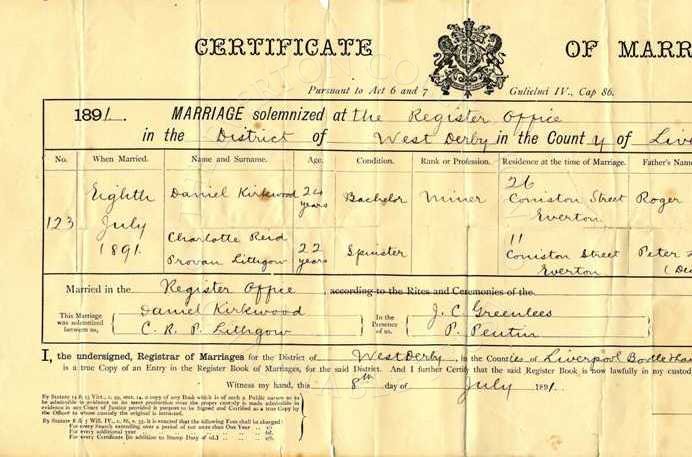 CERTIFICATE OF MARR
Pursuant to Act 6 and 7 Gulielmi IV., Cap 86.
1891. MARRIAGE solemnized at the Register Office
in the District of West Derby in the County of Live
No. When Married. Name and Surname. Age. Condition. Rank or Profession. Residence at the time of Marriage. Father's Name
123
Eighth
July
1891
Daniel Kirkwood
24
years
Bachelor
Miner
26
Coniston Street
Everton
Roger
Charlotte Reid
Provan Lithgow
22
years
Spinster
11
Coniston Street
Everton
Peter
(Dec
Married in the Register Office according to the Rites and Ceremonies of the
This Marriage
was solemnized
between us,
Daniel Kirkwood
C. R. P. Lithgow
In the
Presence
of us,
J. C. Greenlees
P. Pentin
I, the undersigned, Registrar of Marriages for the District of West Derby in the Counties of Liverpool Bootle
is a true Copy of an Entry in the Register Book of Marriages, for the said District. And I further Certify that the said Register Book is now lawfully in my custod
Witness my hand, this 8th day of July 1891.
By Statute 14 & 15 Vict., c. 99, sect. 14, a copy of any Book which is of such a Public nature as to
be admissible in evidence on its mere production from the proper custody is made admissible
in evidence in any Court of Justice provided it purport to be Signed and Certified as a true Copy by
the Officer to whose custody the original is intrusted.
By Statute 6 & 7 Will. IV., c. 86, s. 35, it is enacted that the following Fees shall be charged:
For every Search extending over a period of not more than One Year
For every additional year
For every Certificate (in addition to Stamp Duty of 1d.)